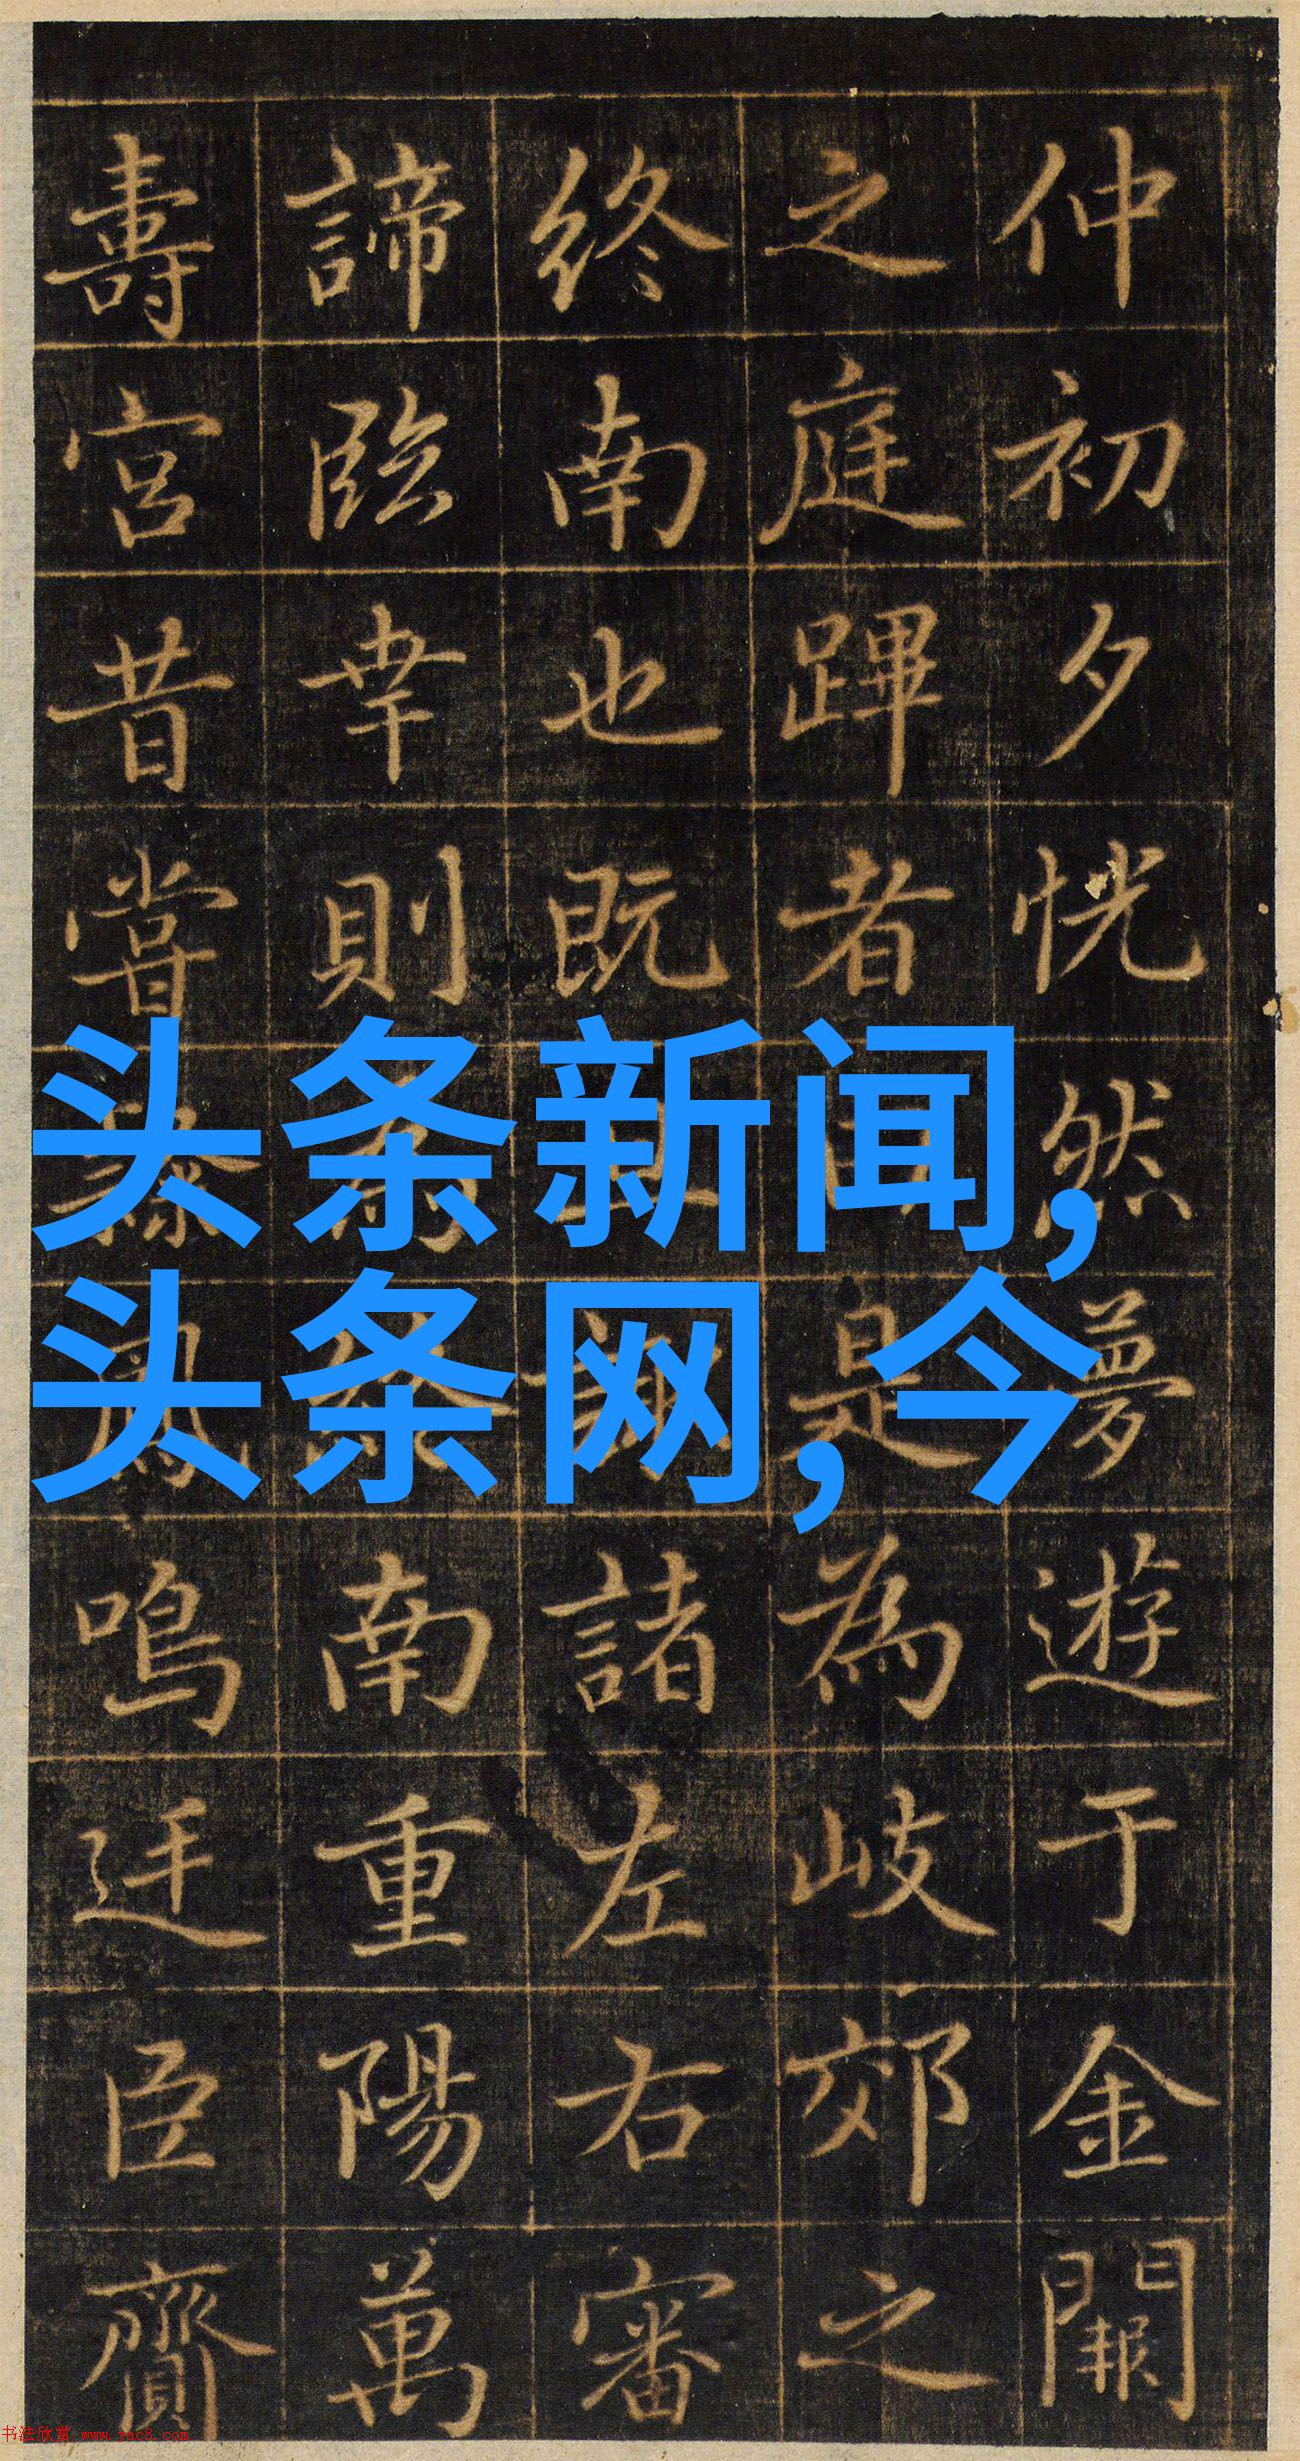 仲初夕恍然夢遊于金闕
之庭蹕者是為岐郊之
終南也既諸左右審
諦臨幸則南重陽萬
壽宮昔嘗鳴迓臣齎
头条新闻,
头条网,今
书法欣赏 www.yac8.com